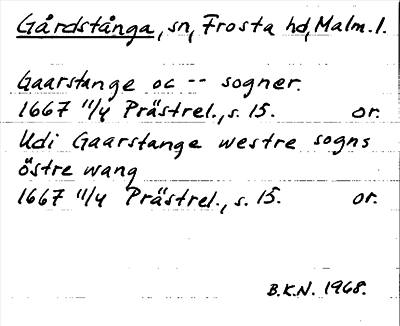 Gårdstånga, sn, Frosta hd, Malm. l.
Gaarstange oc -- sogner.
1667 11/4 Prästrel., s. 15. or.
Udi Gaarstange westre sogns
östre wang
1667 11/4 Prästrel., s. 15. or.
B.K.N. 1968.